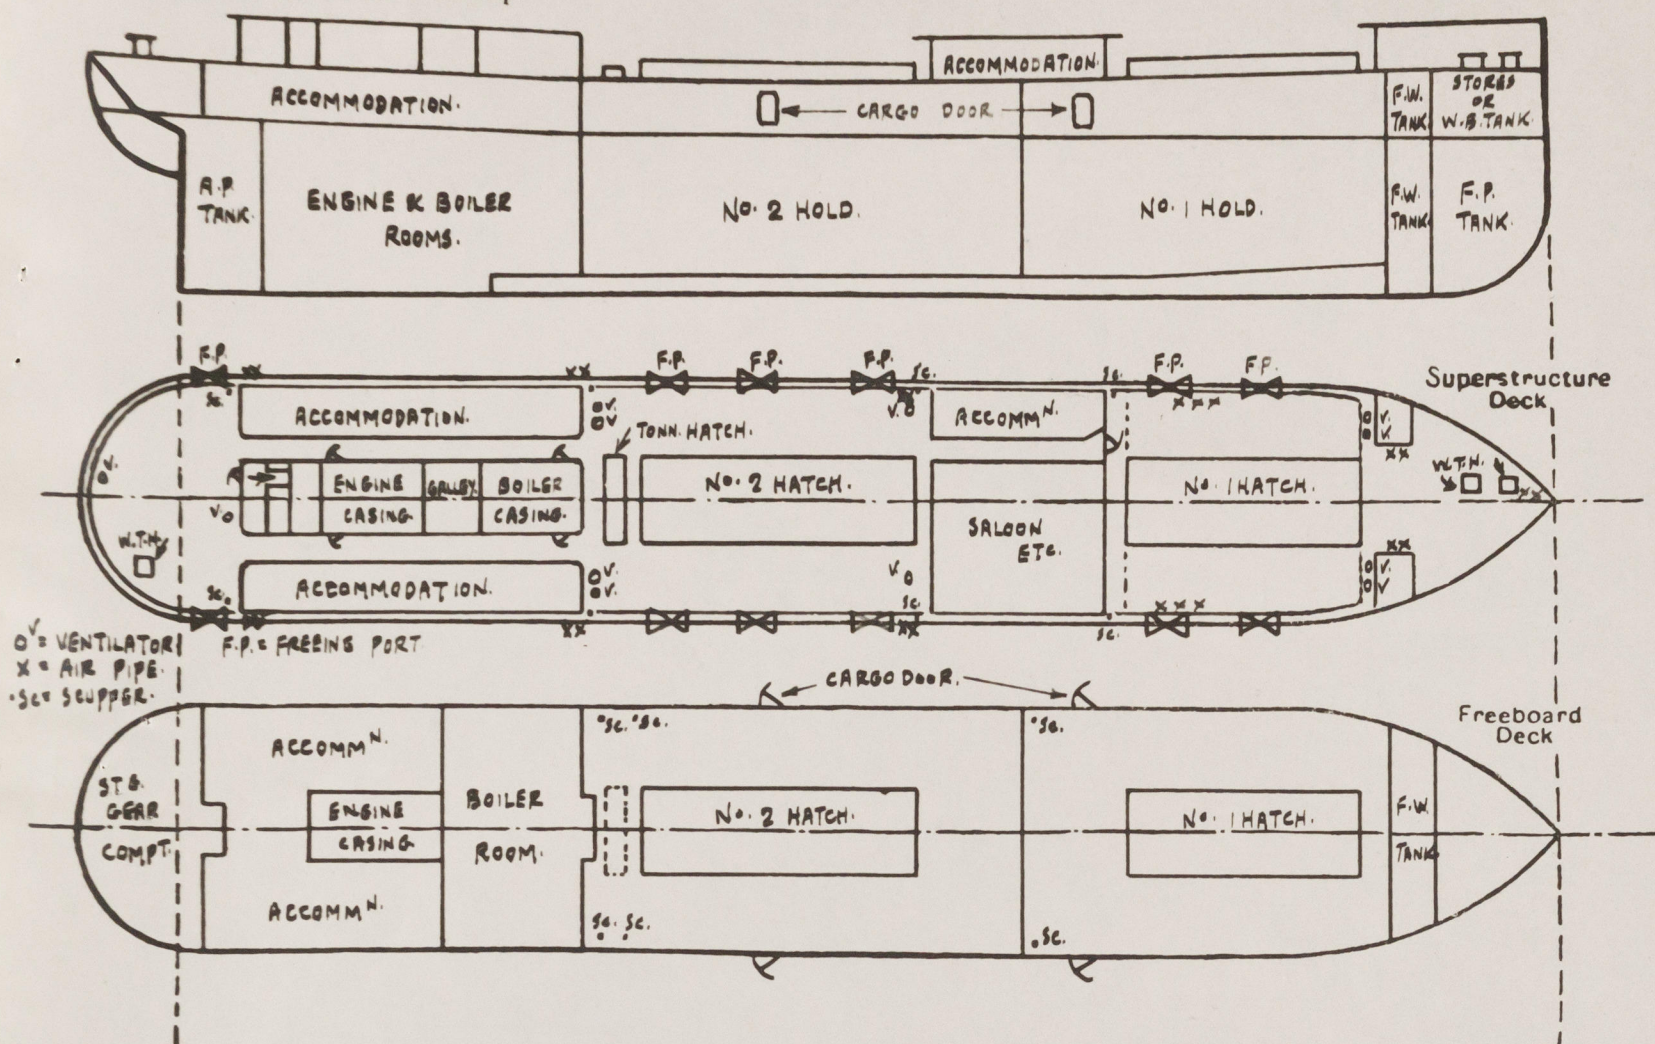 ACCOMMODATION.
ACCOMMODATION.
CARGO DOOR
F.W.
TANK
STORES
OR
W.B.TANK.
A.P.
TANK.
ENGINE & BOILER
ROOMS.
No. 2 HOLD.
No. 1 HOLD.
F.W.
TANK
F.P.
TANK.
F.P.
F.P.
F.P.
F.P.
F.P.
F.P.
xx
xx
Sc.
Sc.
Sc.
Superstructure
Deck
ACCOMMODATION.
V.
V.
TONN. HATCH.
V.
ACCOMMN.
x x x
V.
V.
xx
V.
ENGINE
CASING
GALLEY.
BOILER
CASING.
No. 2 HATCH.
SALOON
ETC.
No. 1 HATCH.
W.T.H.
xx
V
W.T.H.
ACCOMMODATION.
V.
V.
V.
xx
V.
V
Sc.
Sc.
xx
xx
Sc.
x x x
V = VENTILATOR
X = AIR PIPE.
.Sc= SCUPPER.
F.P. = FREEING PORT
CARGO DOOR.
Freeboard
Deck
ACCOMMN.
Sc. Sc.
Sc.
STG.
GEAR
COMPT.
ENGINE
CASING
BOILER
ROOM.
No. 2 HATCH.
No. 1 HATCH.
F.W.
TANK
ACCOMMN.
Sc. Sc.
.Sc.